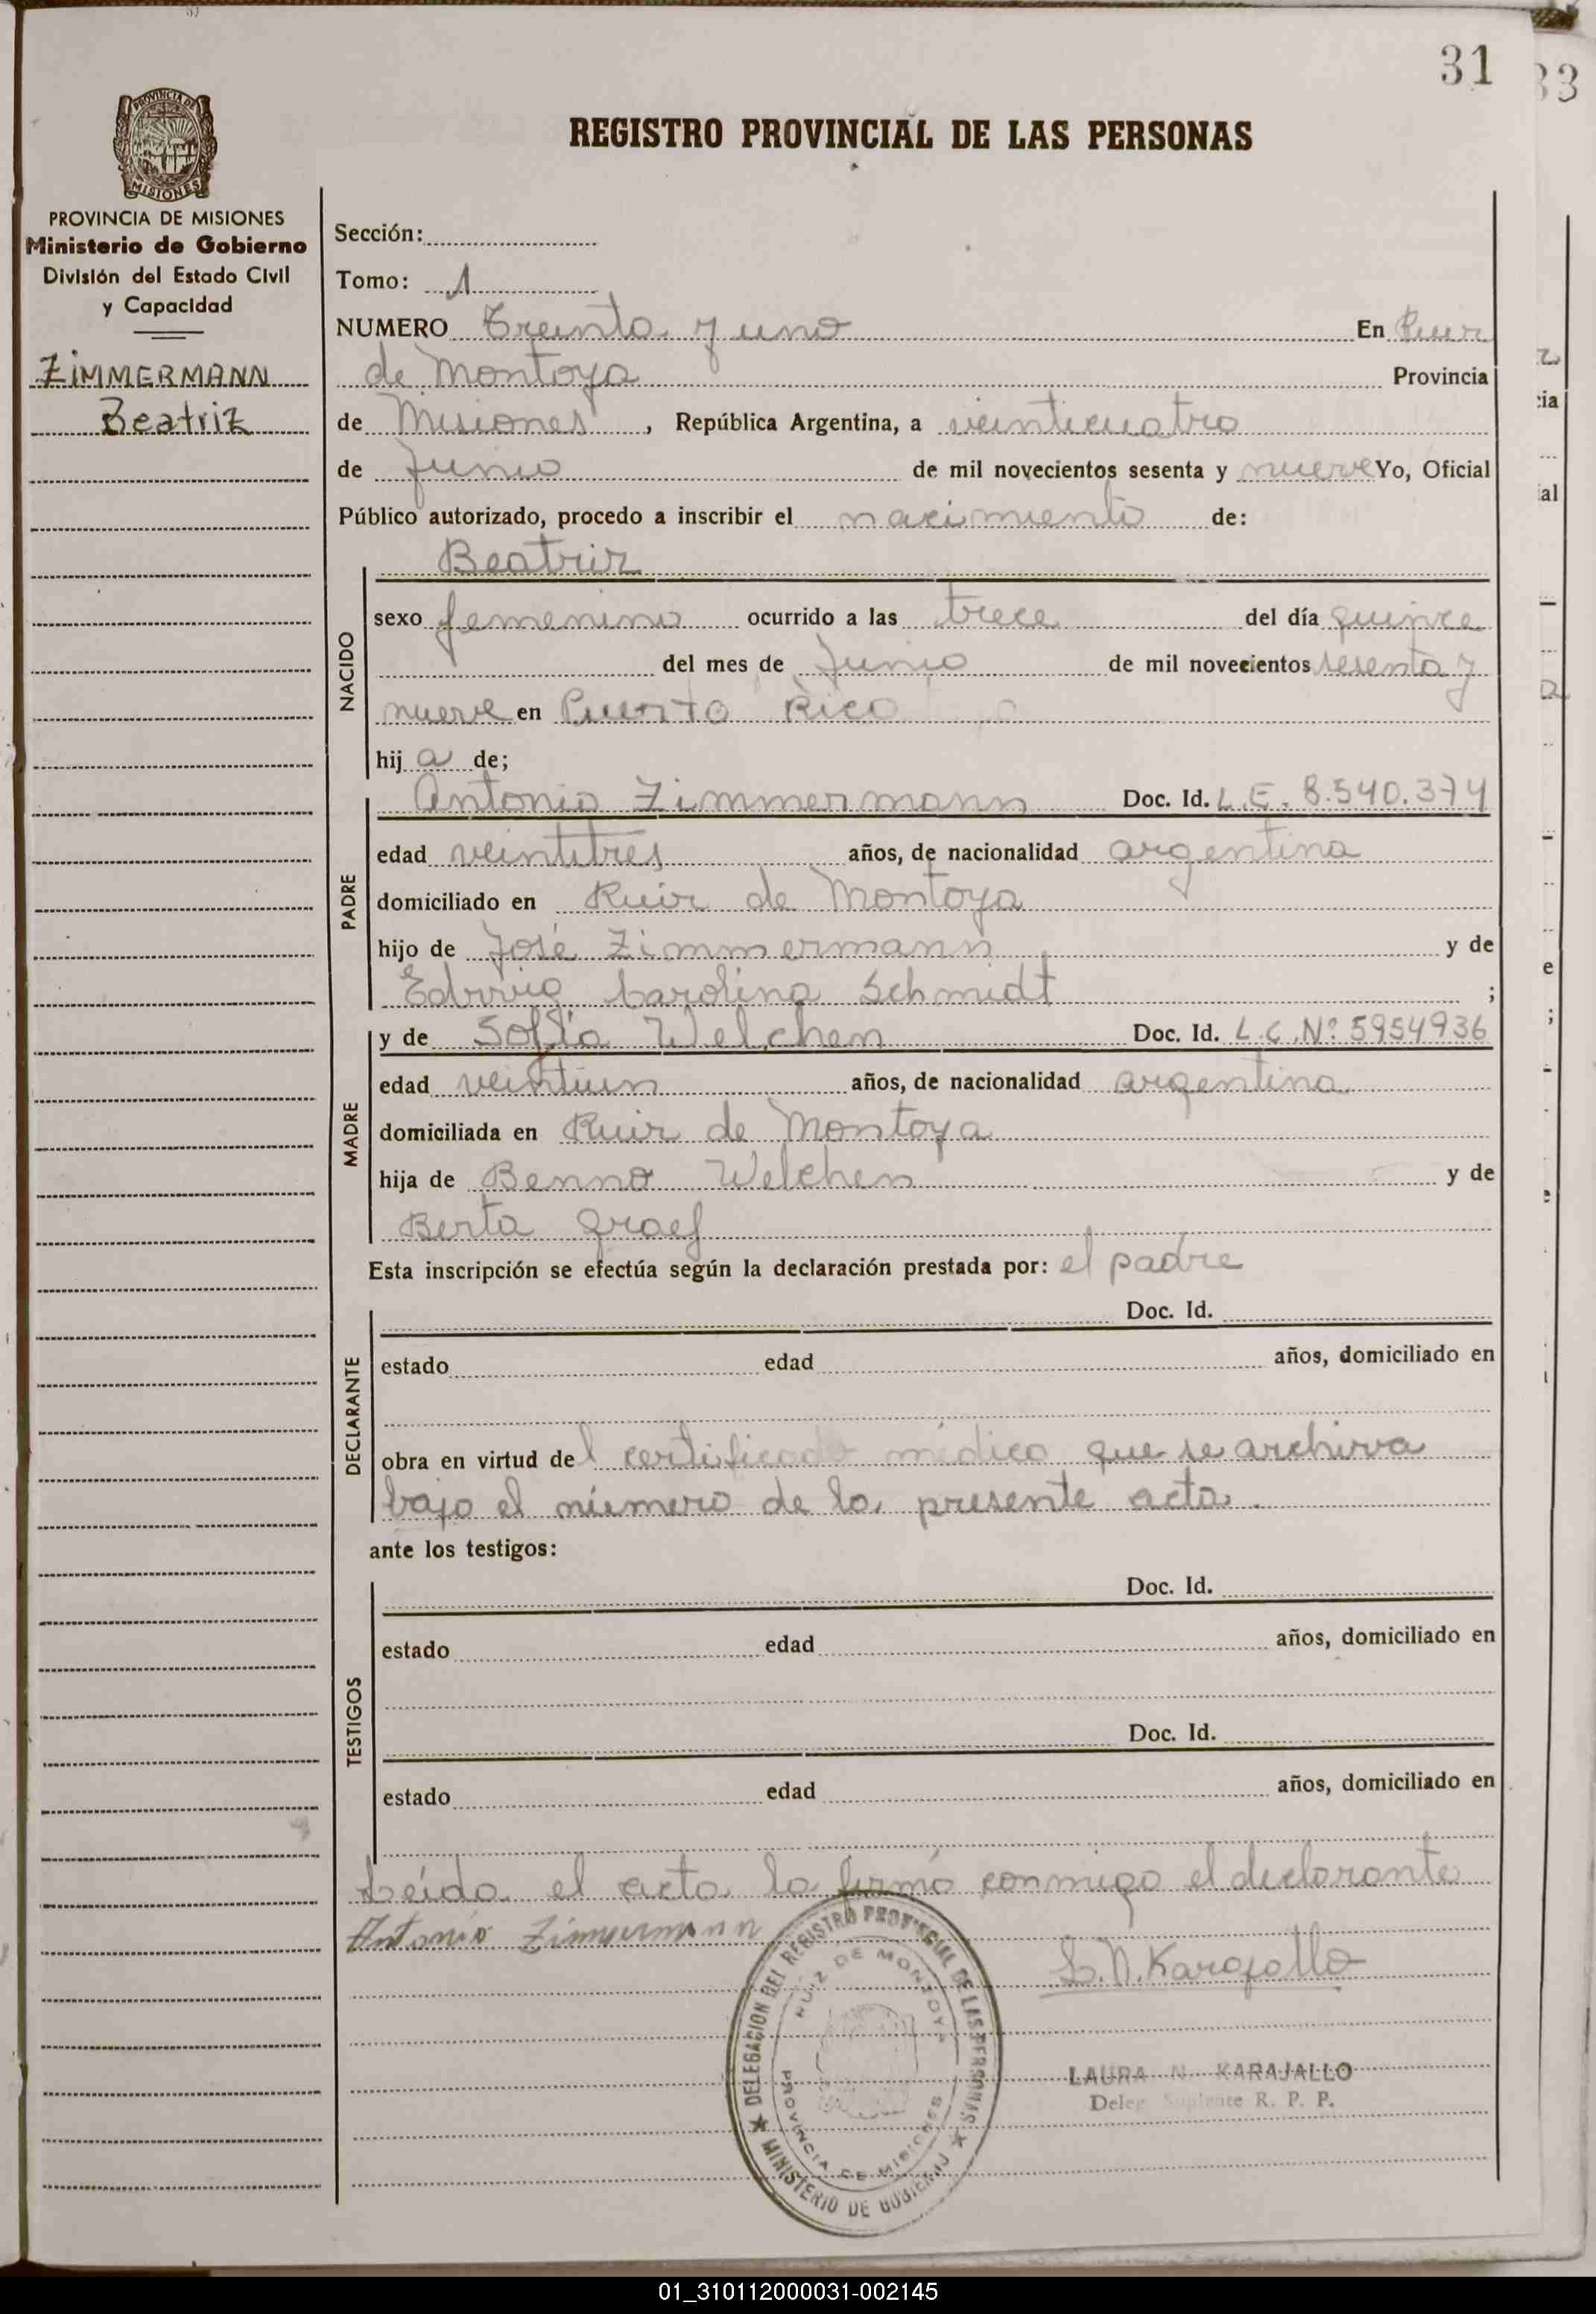 31
33
REGISTRO PROVINCIAL DE LAS PERSONAS
PROVINCIA DE MISIONES
Ministerio de Gobierno
División del Estado Civil
y Capacidad
ZIMMERMANN
Beatriz
Sección:
Tomo: 1
NUMERO Treinta y uno En Ruiz
de Montoya Provincia
de Misiones, República Argentina, a veinticuatro
de Junio de mil novecientos sesenta y nueve Yo, Oficial
Público autorizado, procedo a inscribir el nacimiento de:
Beatriz
NACIDO
sexo femenino ocurrido a las trece del día quince
del mes de Junio de mil novecientos sesenta y
nueve en Puerto Rico
hija de;
PADRE
Antonio Zimmermann Doc. Id. L.E. 8.540.374
edad veintitres años, de nacionalidad argentina
domiciliado en Ruiz de Montoya
hijo de José Zimmermann y de
Edwig Carolina Schmidt ;
MADRE
y de Sofía Welchen Doc. Id. L.C.Nº 5954936
edad veintiun años, de nacionalidad argentina
domiciliada en Ruiz de Montoya
hija de Benno Welchen y de
Berta Graef
Esta inscripción se efectúa según la declaración prestada por: el padre
DECLARANTE
Doc. Id.
estado edad años, domiciliado en
obra en virtud del certificado médico que se archiva
bajo el número de la presente acta.
ante los testigos:
TESTIGOS
Doc. Id.
estado edad años, domiciliado en
Doc. Id.
estado edad años, domiciliado en
Leída el acta la firmó conmigo el declarante
Antonio Zimmermann
L.N.Karajallo
DELEGACION DEL REGISTRO PROVINCIAL DE LAS PERSONAS
RUIZ DE MONTOYA
PROVINCIA DE MISIONES
MINISTERIO DE GOBIERNO
LAURA N. KARAJALLO
Deleg. Suplente R. P. P.
01_310112000031-002145